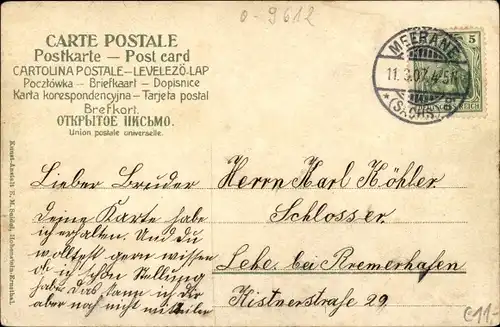 0-9612
CARTE POSTALE
Postkarte — Post card
CARTOLINA POSTALE—LEVELEZŐ-LAP
Pocztówka — Briefkaart — Dopisnice
Karta korespondencyjna — Tarjeta postal
Brefkort.
ОТКРЫТОЕ ПИСЬМО.
Union postale universelle.
5
MEERANE
11.3.07. 4-5N
*(SACHS.)
REICH
Kunst-Anstalt E. M. Seidel, Hohenstein-Ernstthal.
Lieber Bruder
deine Karte habe
ich erhalten. Und du
wolltest gern wissen
ob ich schon Stellung
habe. Das kann ich dir
aber noch nicht mitteilen
Herrn Karl Köhler
Schlosser
Lehe. bei Bremerhafen
Kistnerstraße 29
C11.-